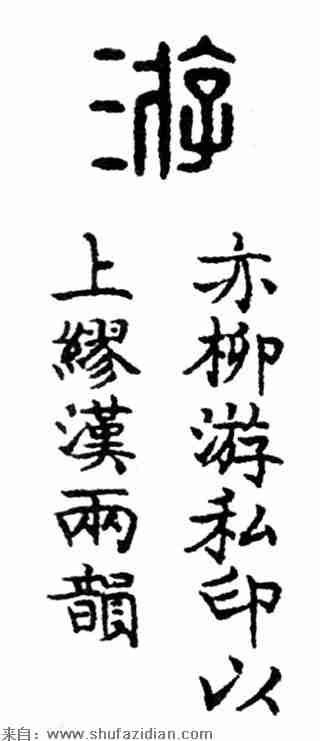 游
亦柳游私印以
上繆漢兩韻
来自：www.shufazidian.com